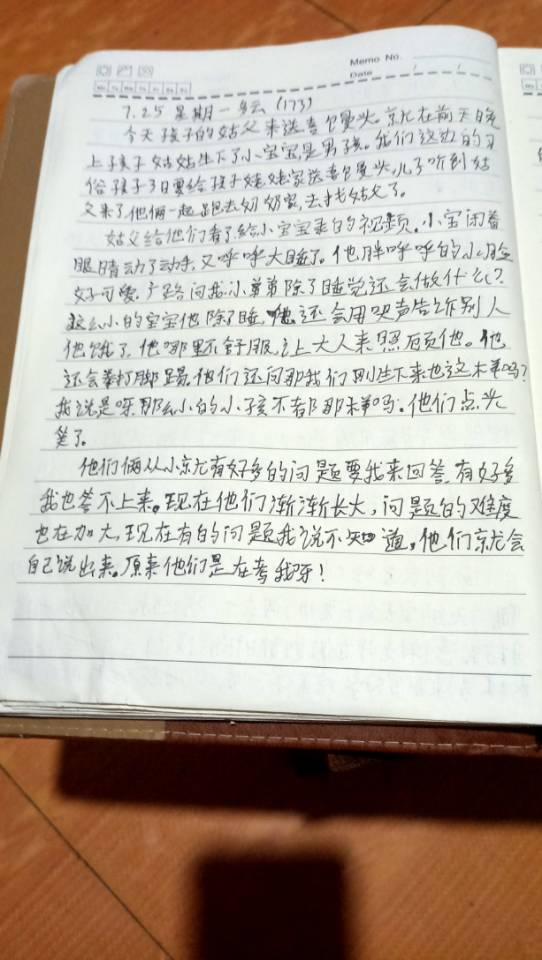 Memo No.
Date
7.25 星期一多云 (173)
今天孩子的姑父来送喜馒头,就在前天晚
上孩子姑姑生下了小宝宝是男孩。我们这边的习
俗孩子3日要给孩子姥姥家送喜馒头,儿子听到姑
父来了他俩一起跑去奶奶家,去找姑父了。
姑父给他们看了给小宝宝录的视频。小宝闭着
眼睛动了动手,又呼呼大睡了。他胖呼呼的小脸
好可爱,广路问我小弟弟除了睡觉还会做什么?
这么小的宝宝他除了睡,他还会用哭声告诉别人
他饿了,他哪里不舒服,让大人来照顾他。他
还会拳打脚踢,他们还问那我们刚生下来也这样吗?
我说是呀那么小的小孩不都那样吗。他们点头
笑了。
他们俩从小就有好多的问题要我来回答,有好多
我也答不上来。现在他们渐渐长大,问题的难度
也在加大,现在有的问题我说不知道,他们就会
自己说出来。原来他们是在考我呀!